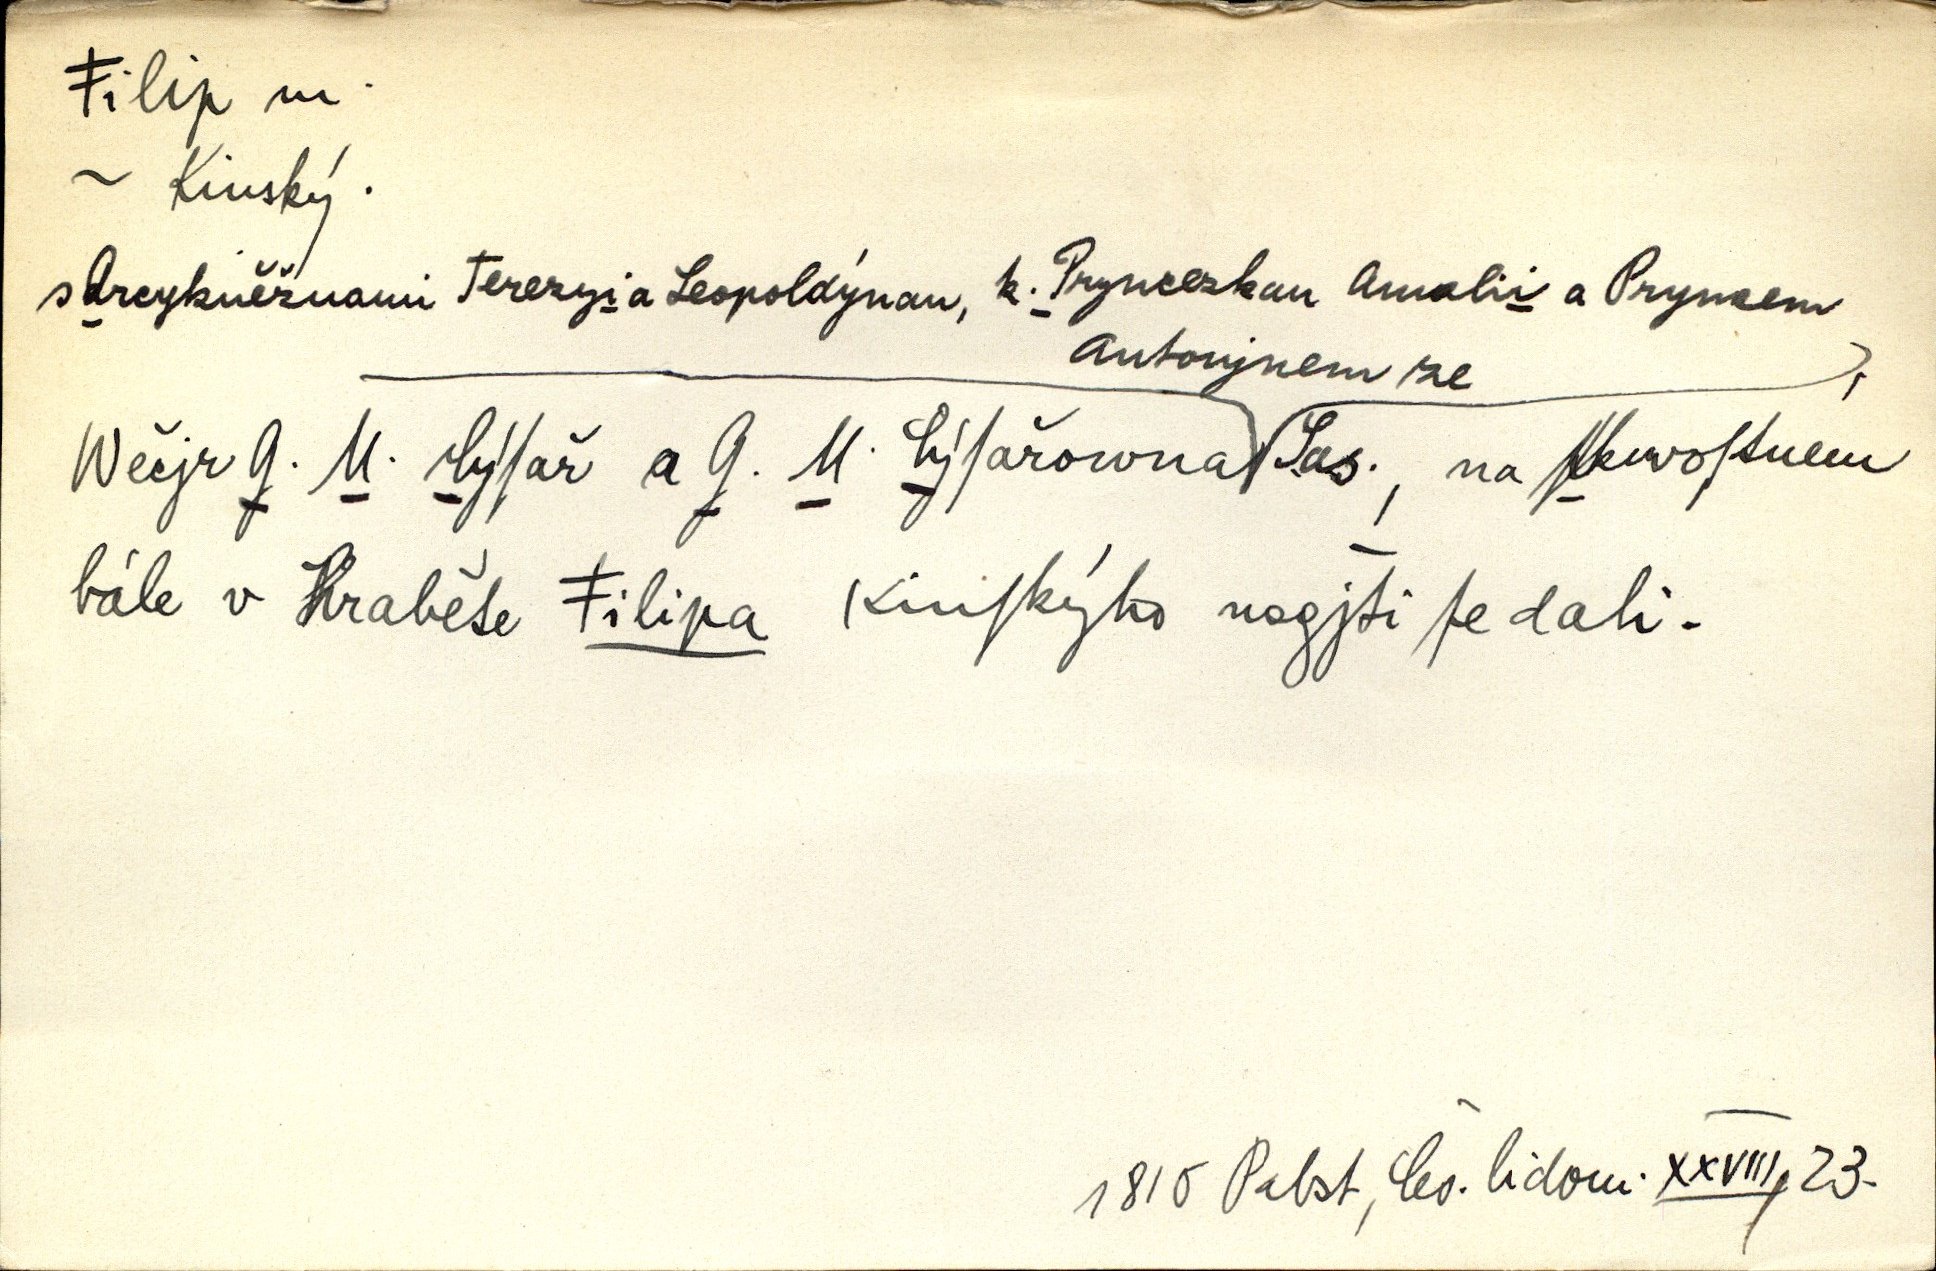 Filip m.
~ Kinský.
s Arcykněžnami Terezyi a Leopoldýnau, k. Pryncezkau Amalii a Pryncem
Antonjnem ze
Wečjr G. M. Cýſař a G. M. Cýſařowna Sas., na ſkwoſtném
bále v Hraběte Filipa Kinſkýho nagjti ſe dali.
1815 Pabst, Čes. lidom. XXVIII, 23.